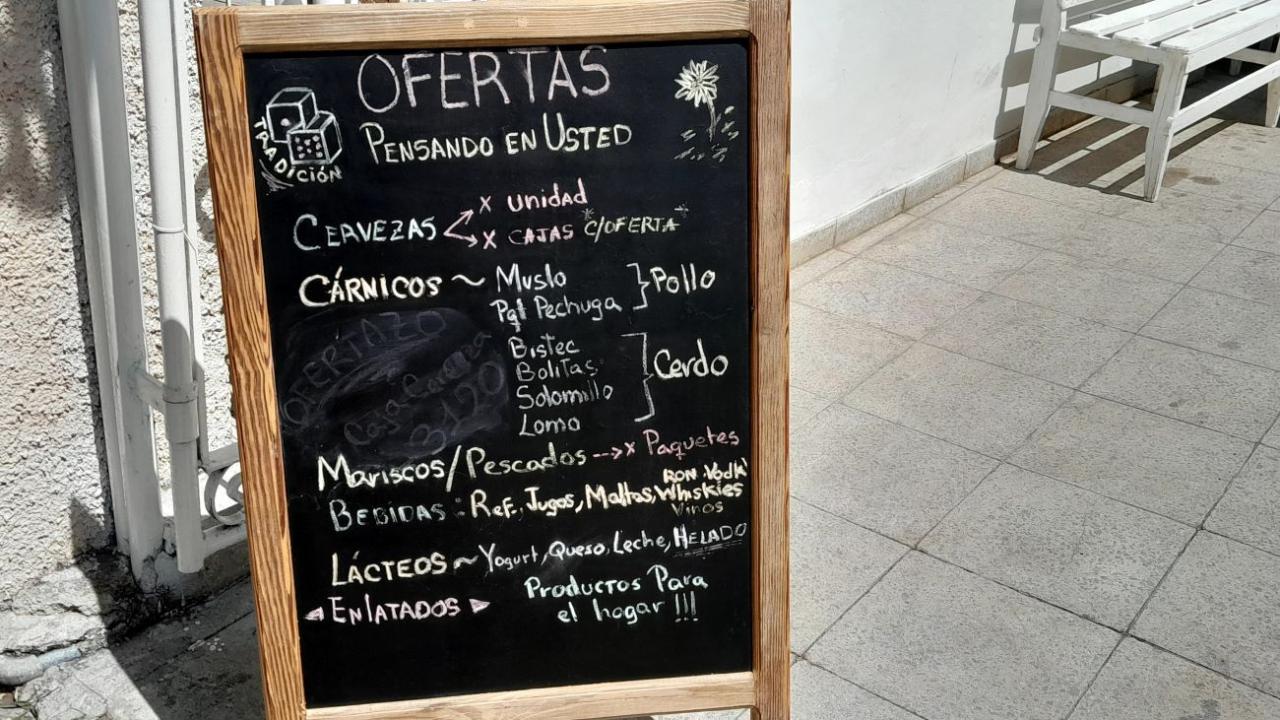 OFERTAS
TRADICIÓN
PENSANDO EN USTED
CERVEZAS x unidad
x CAJAS *C/OFERTA*
CÁRNICOS ~ Muslo } Pollo
Pqt Pechuga
OFERTAZO
Caja Cerveza
3120
Bistec
Bolitas
Solomillo
Lomo
} Cerdo
Mariscos/Pescados --> x Paquetes
BEBIDAS : Ref., Jugos, Maltas, Whiskies
RON Vodk
Vinos
LÁCTEOS ~ Yogurt, Queso, Leche, HELADO
ENLATADOS
Productos Para
el hogar !!!